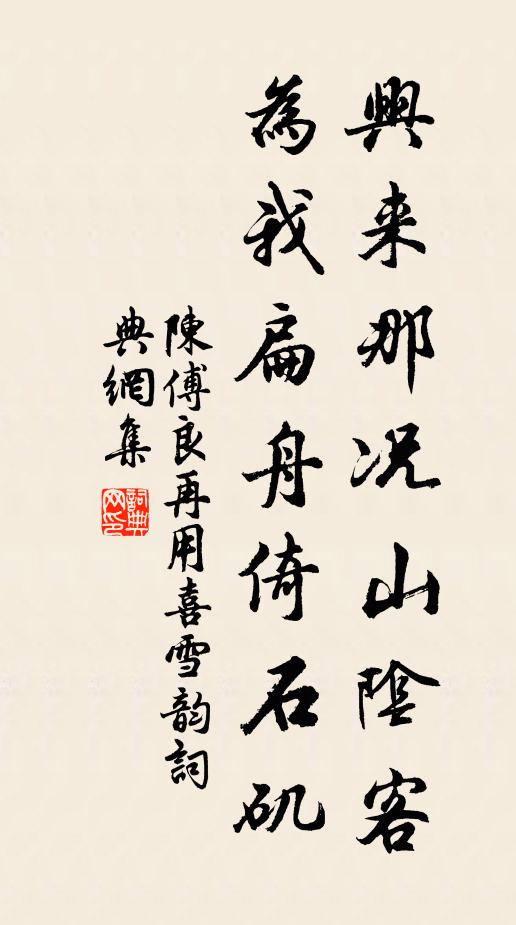 興来那況山陰客
為我扁舟倚石矶
陳傅良再用喜雪韵詞
典網集
詞典网印